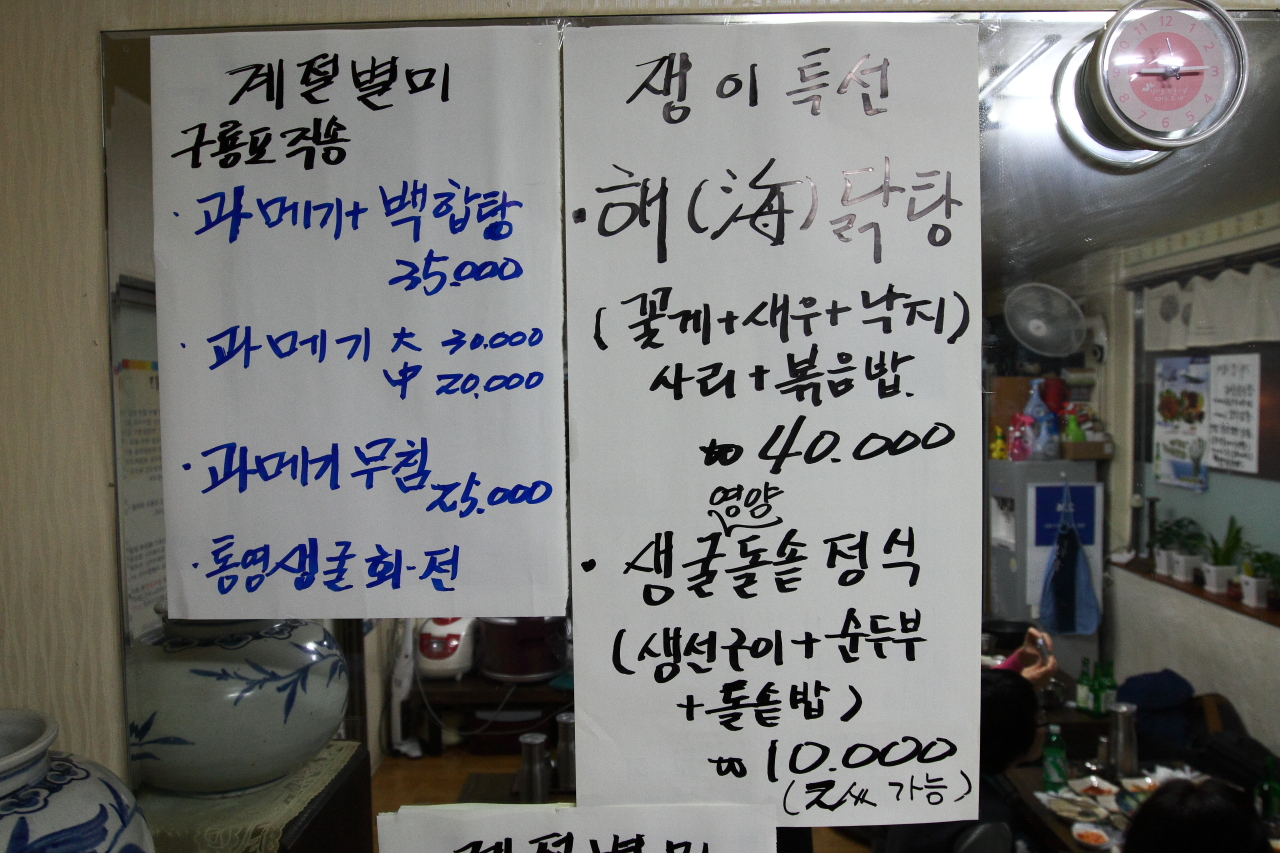 계절별미
구룡포 직송
· 과메기+백합탕
35.000
· 과메기 大 30.000
中 20.000
· 과메기무침
25.000
· 통영생굴회·전
쟁이특선
· 해(海)닭탕
(꽃게+새우+낙지)
사리+볶음밥.
₩ 40.000
영양
· 생굴돌솥정식
(생선구이+순두부
+돌솥밥)
₩ 10.000
가능)
계절별미